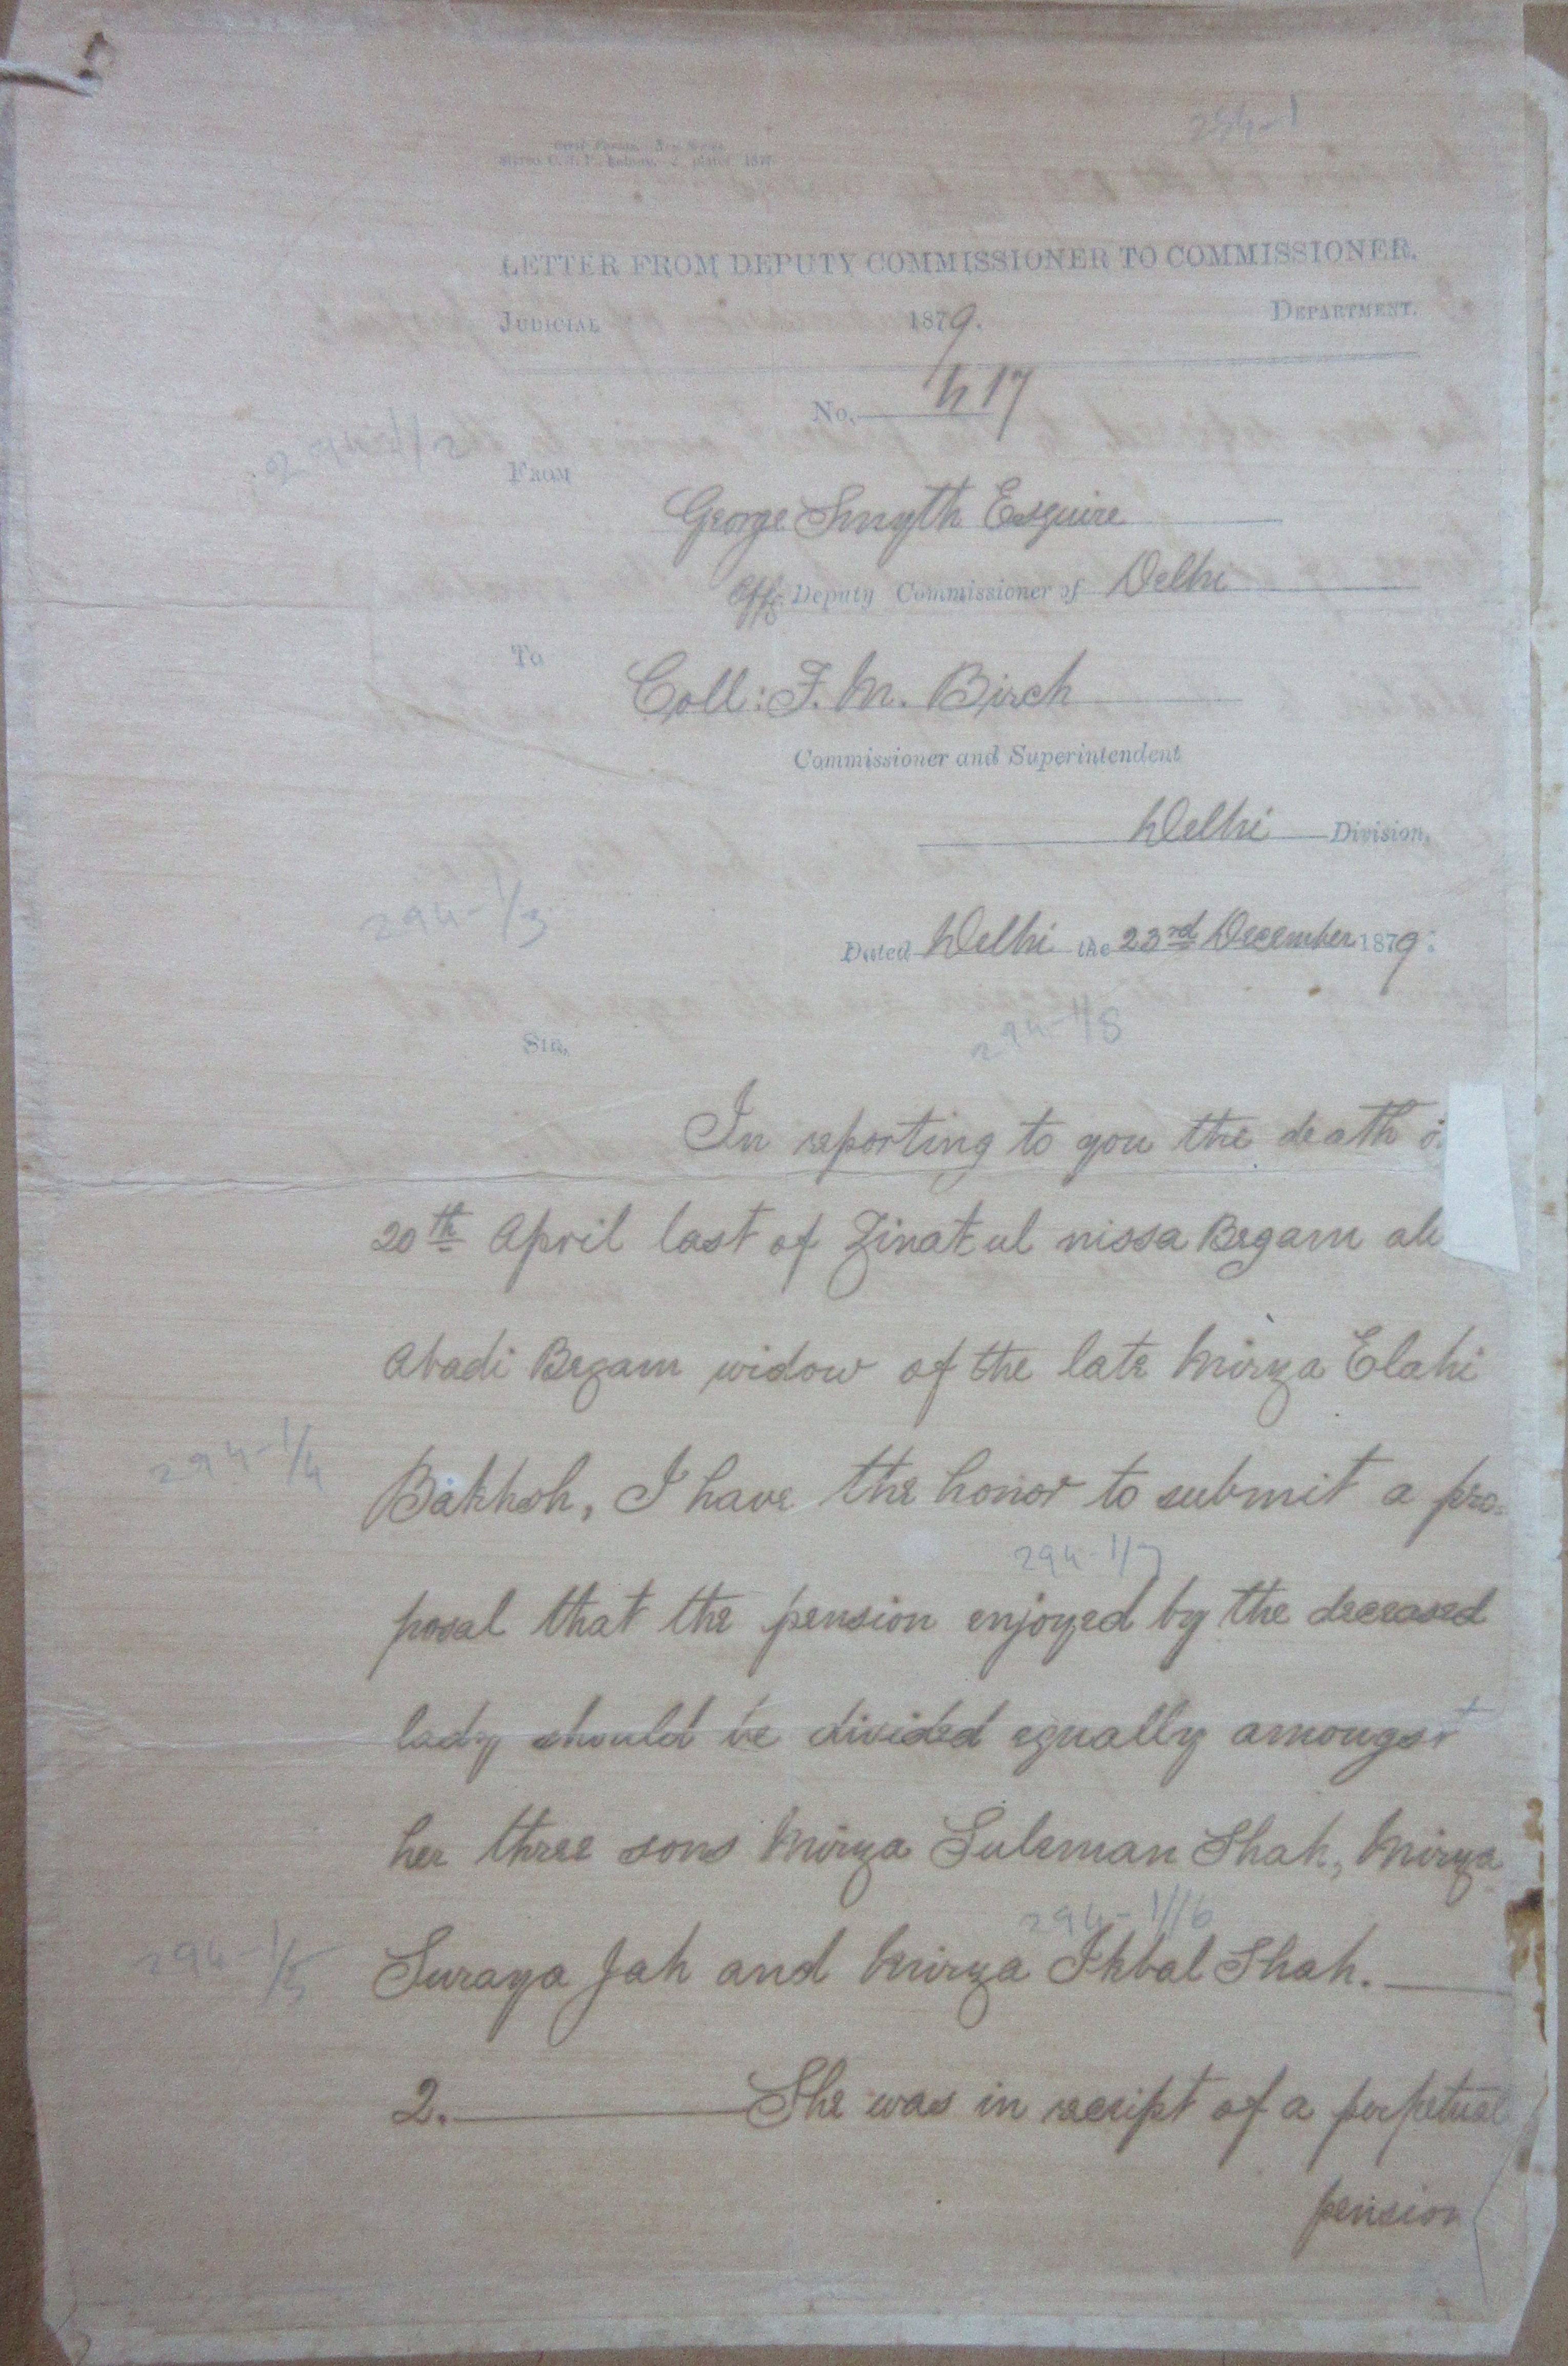 294-1
LETTER FROM DEPUTY COMMISSIONER TO COMMISSIONER.
JUDICIAL 1879. DEPARTMENT.
No. 417
FROM
George Smyth Esquire
Offg Deputy Commissioner of Delhi
To
Coll: F. M. Birch
Commissioner and Superintendent
Delhi Division,
294-1/3
Dated Delhi the 23rd December 1879.
294-1/8
SIR,
In reporting to you the death o
20th April last of Zinat ul nissa Begam ali
Abadi Begam widow of the late Mirza Elahi
294-1/4
Bakhsh, I have the honor to submit a pro-
294-1/7
posal that the pension enjoyed by the deceased
lady should be divided equally amongst
her three sons Mirza Suleman Shah, Mirza
294-1/16
294-1/5
Suraya Jah and Mirza Ikbal Shah.
2. She was in receipt of a perpetual
pension